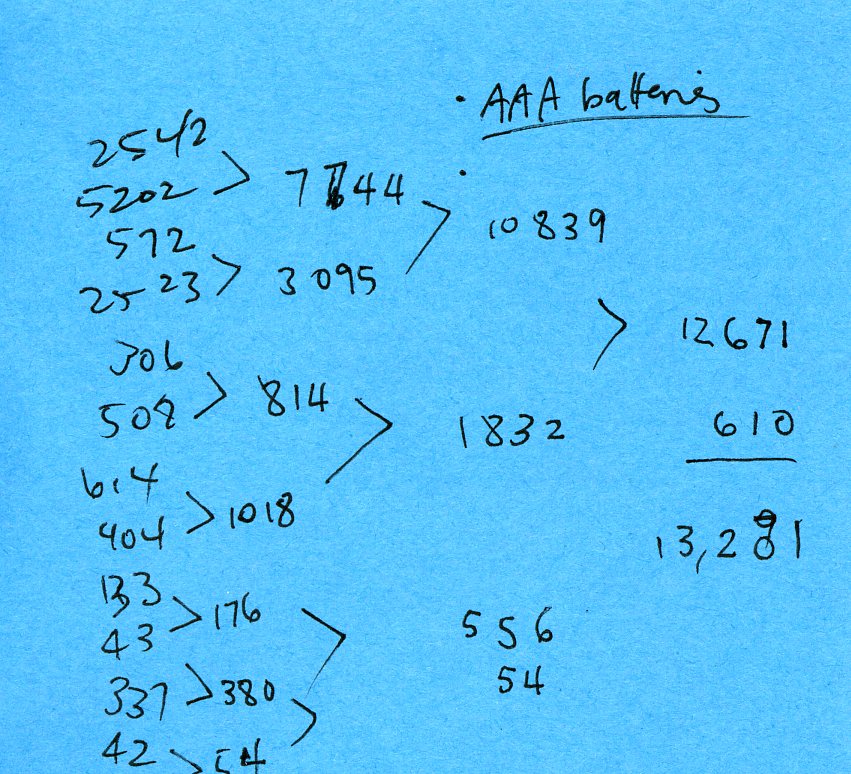 · AAA batteries
·
2542
5202 > 7744
572
2523 > 3095 > 10839
306
508 > 814
614
404 > 1018 > 1832 > 12671
610
13,281
133
43 > 176
337 > 380 > 556
42 > 54
54